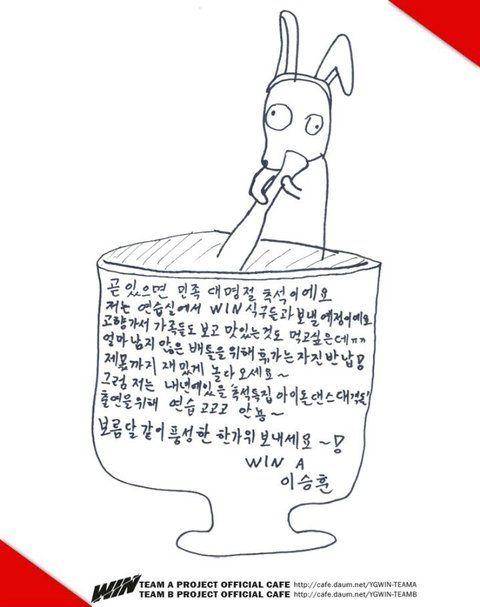 곧 있으면 민족 대명절 추석이에요
저는 연습실에서 WIN 식구들과 보낼 예정이에요
고향가서 가족들도 보고 맛있는것도 먹고싶은데ㅠㅠ
얼마남지 않은 배틀을 위해 휴가는 자진반납!
제몫까지 재밌게 놀다오세요~
그럼 저는 내년에있을 '추석특집 아이돌댄스대격돌'
출연을위해 연습 고고고 안뇽~
보름달같이 풍성한 한가위 보내세요~!
WIN A
이승훈
WIN TEAM A PROJECT OFFICIAL CAFE http://cafe.daum.net/YGWIN-TEAMA
TEAM B PROJECT OFFICIAL CAFE http://cafe.daum.net/YGWIN-TEAMB